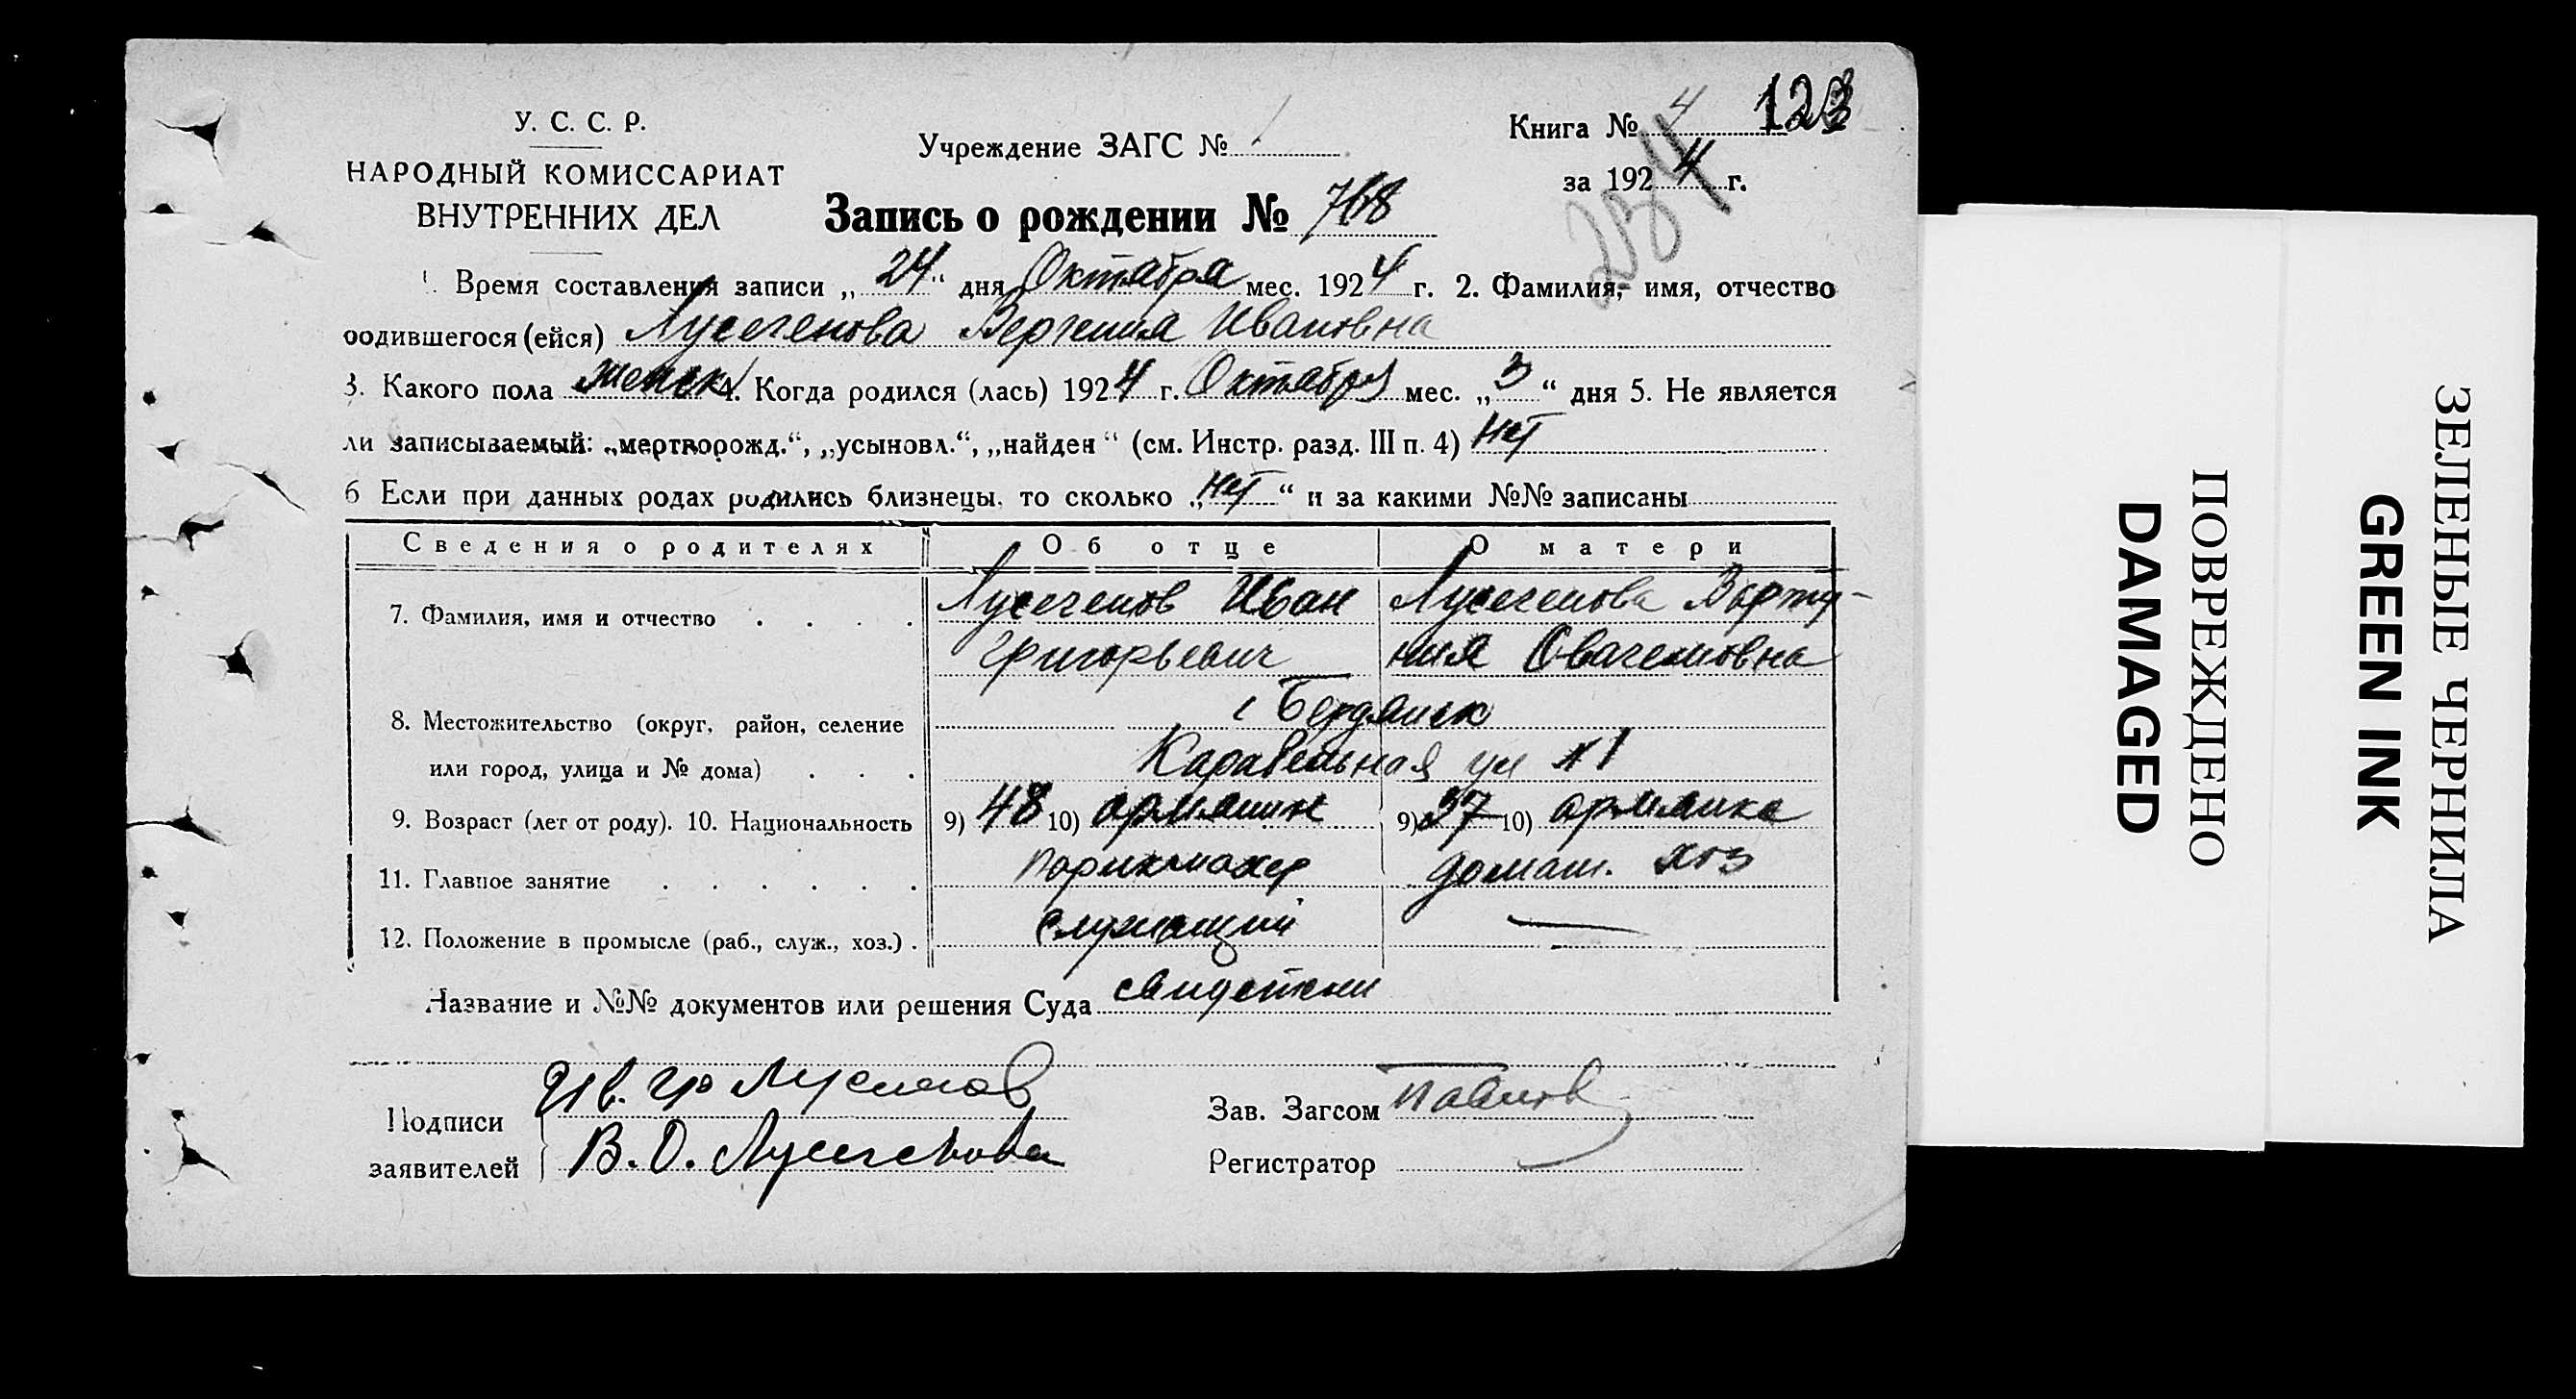 У. С. С. Р.
НАРОДНЫЙ КОМИССАРИАТ
ВНУТРЕННИХ ДЕЛ
Учреждение ЗАГС №
Книга № 4 123
за 1924 г.
Запись о рождении № 768
Время составления записи „24“ дня Октября мес. 1924 г. 2. Фамилия, имя, отчество
родившегося (ейся) Лусегенова Вергиния Ивановна
3. Какого пола женск 4. Когда родился (лась) 1924 г. Октября мес. „3“ дня 5. Не является
ли записываемый: „мертворожд.“, „усыновл.“, „найден“ (см. Инстр. разд. III п. 4) нет
6 Если при данных родах родились близнецы, то сколько „нет“ и за какими №№ записаны
Сведения о родителях Об отце О матери
7. Фамилия, имя и отчество . . . . Лусегенов Иван Лусегенова Вартu-
Григорьевич ния Овагемовна
8. Местожительство (округ, район, селение г Бердянск
или город, улица и № дома) . . . Каравельная ул № 1
9. Возраст (лет от роду). 10. Национальность 9) 48 10) армянин 9) 37 10) армянка
11. Главное занятие . . . . . . парикмахер домаш. хоз
12. Положение в промысле (раб., служ., хоз.) . служащий —
Название и №№ документов или решения Суда свидетели
Подписи заявителей
Ив. Гр Лусегенов
В. О. Лусегенова
Зав. Загсом Павлов
Регистратор
ПОВРЕЖДЕНО
DAMAGED
ЗЕЛЕНЫЕ ЧЕРНИЛА
GREEN INK